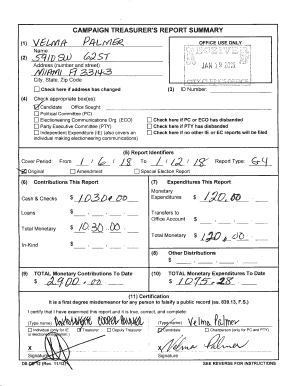 CAMPAIGN TREASURER'S REPORT SUMMARY
(1) VELMA PALMER
Name
OFFICE USE ONLY
(2) 5910 SW 62 ST
Address (number and street)
MIAMI Fl 33143
City, State, Zip Code
JAN 19 2018
Check here if address has changed
(3) ID Number:
(4) Check appropriate box(es):
Candidate Office Sought:
Political Committee (PC)
Electioneering Communications Org. (ECO)
Check here if PC or ECO has disbanded
Party Executive Committee (PTY)
Check here if PTY has disbanded
Independent Expenditure (IE) (also covers an individual making electioneering communications)
Check here if no other IE or EC reports will be filed
(5) Report Identifiers
Cover Period: From 1 / 6 / 18 To 1 / 12 / 18 Report Type: G4
Original Amendment Special Election Report
(6) Contributions This Report
(7) Expenditures This Report
Cash & Checks $ 1030.00
Monetary Expenditures $ 120.00
Loans $
Transfers to Office Account $
Total Monetary $ 1030.00
Total Monetary $ 120.00
In-Kind $
(8) Other Distributions
$
(9) TOTAL Monetary Contributions To Date
$ 2900.00
(10) TOTAL Monetary Expenditures To Date
$ 1095.28
(11) Certification
It is a first degree misdemeanor for any person to falsify a public record (ss. 839.13, F.S.)
I certify that I have examined this report and it is true, correct, and complete:
(Type name)
(Type name) Velma Palmer
Individual (only for IE or electioneering comm.) Treasurer Deputy Treasurer
Candidate Chairperson (only for PC and PTY)
X
X Velma Palmer
Signature
Signature
DS-DE 12 (Rev. 11/13)
SEE REVERSE FOR INSTRUCTIONS